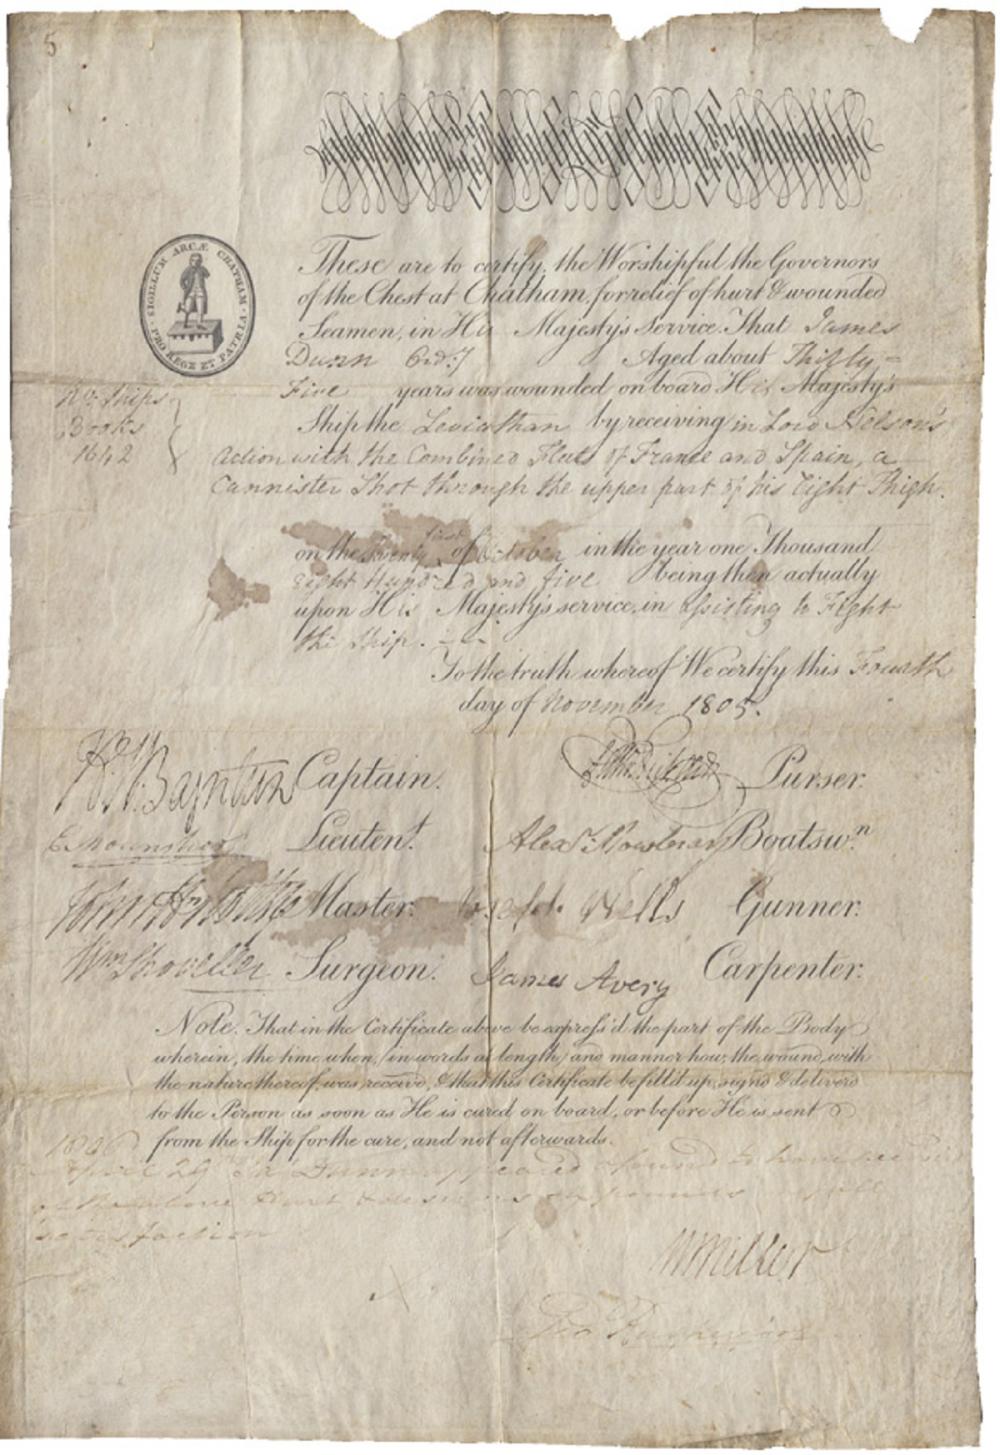 5
SIGILLUM ARCÆ CHATHAM · PRO REGE ET PATRIA ·
These are to certify, the Worshipful the Governors
of the Chest at Chatham, for relief of hurt & wounded
Seamen, in His Majesty's Service. That James
Dunn Ord:y Aged about Thirty =
Five years was wounded on board His Majesty's
No. Ships
Books
1642
Ship the Leviathan by receiving in Lord Nelson's
action with the Combined Fleets of France and Spain, a
Cannister Shot through the upper part of his Right Thigh.
on the Twenty first of October in the year one Thousand
Eight Hundred and five being then actually
upon His Majesty's service, in assisting to Fight
the Ship.
To the truth whereof We certify this Fourth
day of November 1805.
H. W. Bayntun Captain. Purser.
E Mounsher Lieuten.t Alex.r Boatsw.n
John Master. Joseph Wells Gunner.
Wm Shoveller Surgeon. James Avery Carpenter.
Note. That in the Certificate above be express'd the part of the Body
wherein, the time when, (in words at length) and manner how, the wound, with
the nature thereof, was received, & that this Certificate be fill'd up, sign'd & deliver'd
to the Person as soon as He is cured on board, or before He is sent
from the Ship for the cure, and not afterwards.
1806
April 29 Dunn appeared & found to have received
Hurt
satisfaction
W Miller